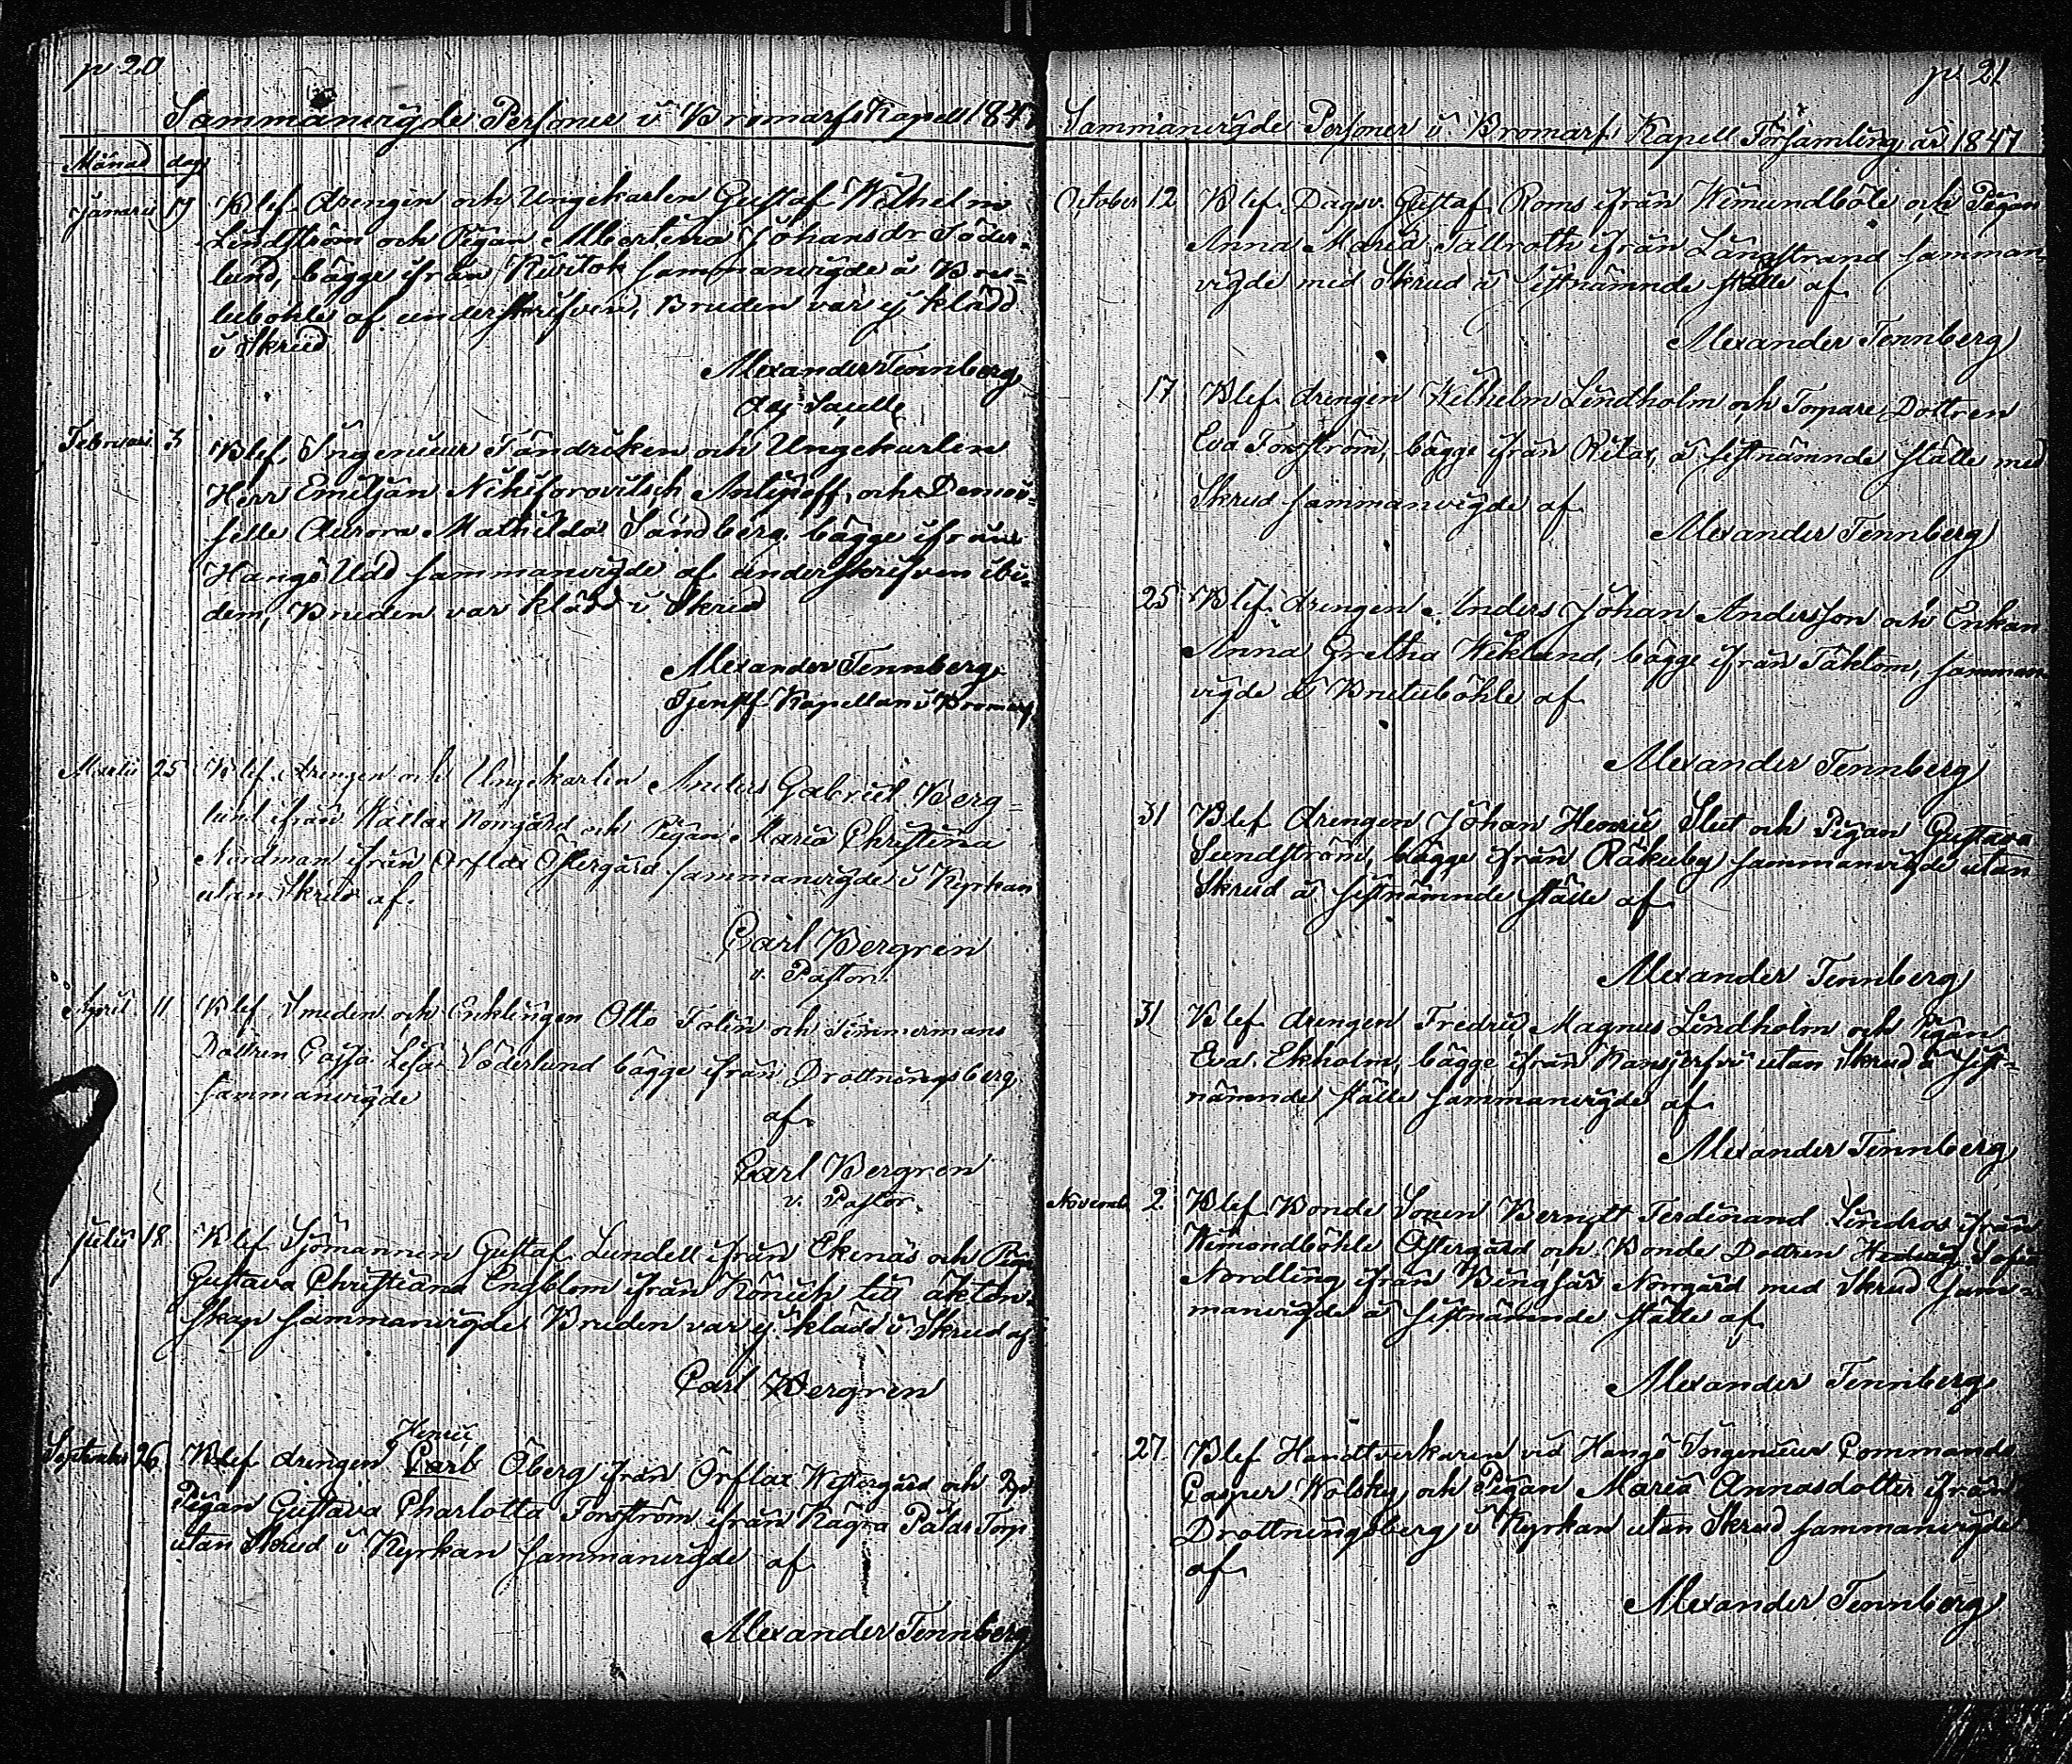 p 20
Sammanvigde Personer i Bromarf Kapell 1847
Månad dag
Januari 17 Blef Drengen och Ungekarlen Gustaf Wilhelm
Lindström och Pigan Albertina Johansdr Söder-
lund, bägge ifrån Rivitok sammanvigde å Bre-
lubohle af underskrifven, Bruden var ej klädd
i Skrud
Alexander Tennberg
Februari 3 Blef Ingenieur Fändriken och Ungekarlen
Herr Emiljan Nikiforovitsch Antipoff och Demoi-
selle Aurora Mathilda Sandberg bägge ifrån
Hangö Udd sammanvigde af underskrifven ibi-
dem, Bruden var klädd i Skrud
Alexander Tennberg
Tjenstf. Kapellan i Bromarf
Martii 25 Blef Drengen och Ungekarlen Anders Gabriel Berg-
lund ifrån Källar Norrgård och Pigan Maria Christina
Nordman ifrån Orflax Östergård sammanvigde i Kyrkan
utan Skrud af.
Carl Bergren
v. Pastor.
April 11 Blef Smeden och Enklingen Otto Tolin och Timmermans
Dottren Cajsa Lisa Söderlund bägge ifrån Drottningsberg,
sammanvigde
af.
Carl Bergren
v. Pastor.
Julii 18 Blef Sjömannen Gustaf Lundell ifrån Ekenäs och Piga
Gustava Christiana Engblom ifrån Könick till äkten-
skap sammanvigde Bruden var ej klädd i Skrud af
Carl Bergren
Henric
September 26 Blef drengen Carl Öberg ifrån Orflax Westergård och
Pigan Gustava Charlotta Forsström ifrån Kägra Pålas Torp
utan Skrud i Kyrkan sammanvigde af
Alexander Tennberg
p 21
Sammanvigde Personer i Bromarf Kapell Församling år 1847
October 12 Blef Dagsv. Gustaf Roms ifrån Wimundböle och Pigan
Anna Maria Tallroth ifrån Långstrand samman-
vigde med Skrud å sistnämnde ställe af
Alexander Tennberg
17 Blef drengen Wilhelm Lindholm och Torpare Dottren
Eva Forsström, bägge ifrån Rilax, å sistnämnde ställe med
Skrud sammanvigde af
Alexander Tennberg
25 Blef drengen Anders Johan Andersson och Enkan
Anna Gretha Wiklund, bägge ifrån Täktom, samman-
vigde å Brutuböhle af
Alexander Tennberg
31 Blef drengen Johan Henric Slut och Pigan Gustava
Sundström, bägge ifrån Räkuby sammanvigde utan
Skrud å sistnämnde ställe af
Alexander Tennberg
31 Blef drengen Fredric Magnus Lindholm och Pigan
Eva Ekholm, bägge ifrån Kansjerfvi utan Skrud å sist-
nämnde ställe sammanvigde af
Alexander Tennberg
Novemb. 2 Blef Bonde Sonen Berndt Ferdinand Lindros ifrån
Wimondböhle Östergård och Bonde Dottren Hedvig Sofia
Nordling ifrån Bingsär Norrgård med Skrud sam-
manvigde å sistnämnde ställe af
Alexander Tennberg
27 Blef Handtverkaren vid Hangö Ingenieur Commando
Casper Wolsky och Pigan Maria Annasdotter ifrån
Drottningsberg i Kyrkan utan Skrud sammanvigde
af
Alexander Tennberg